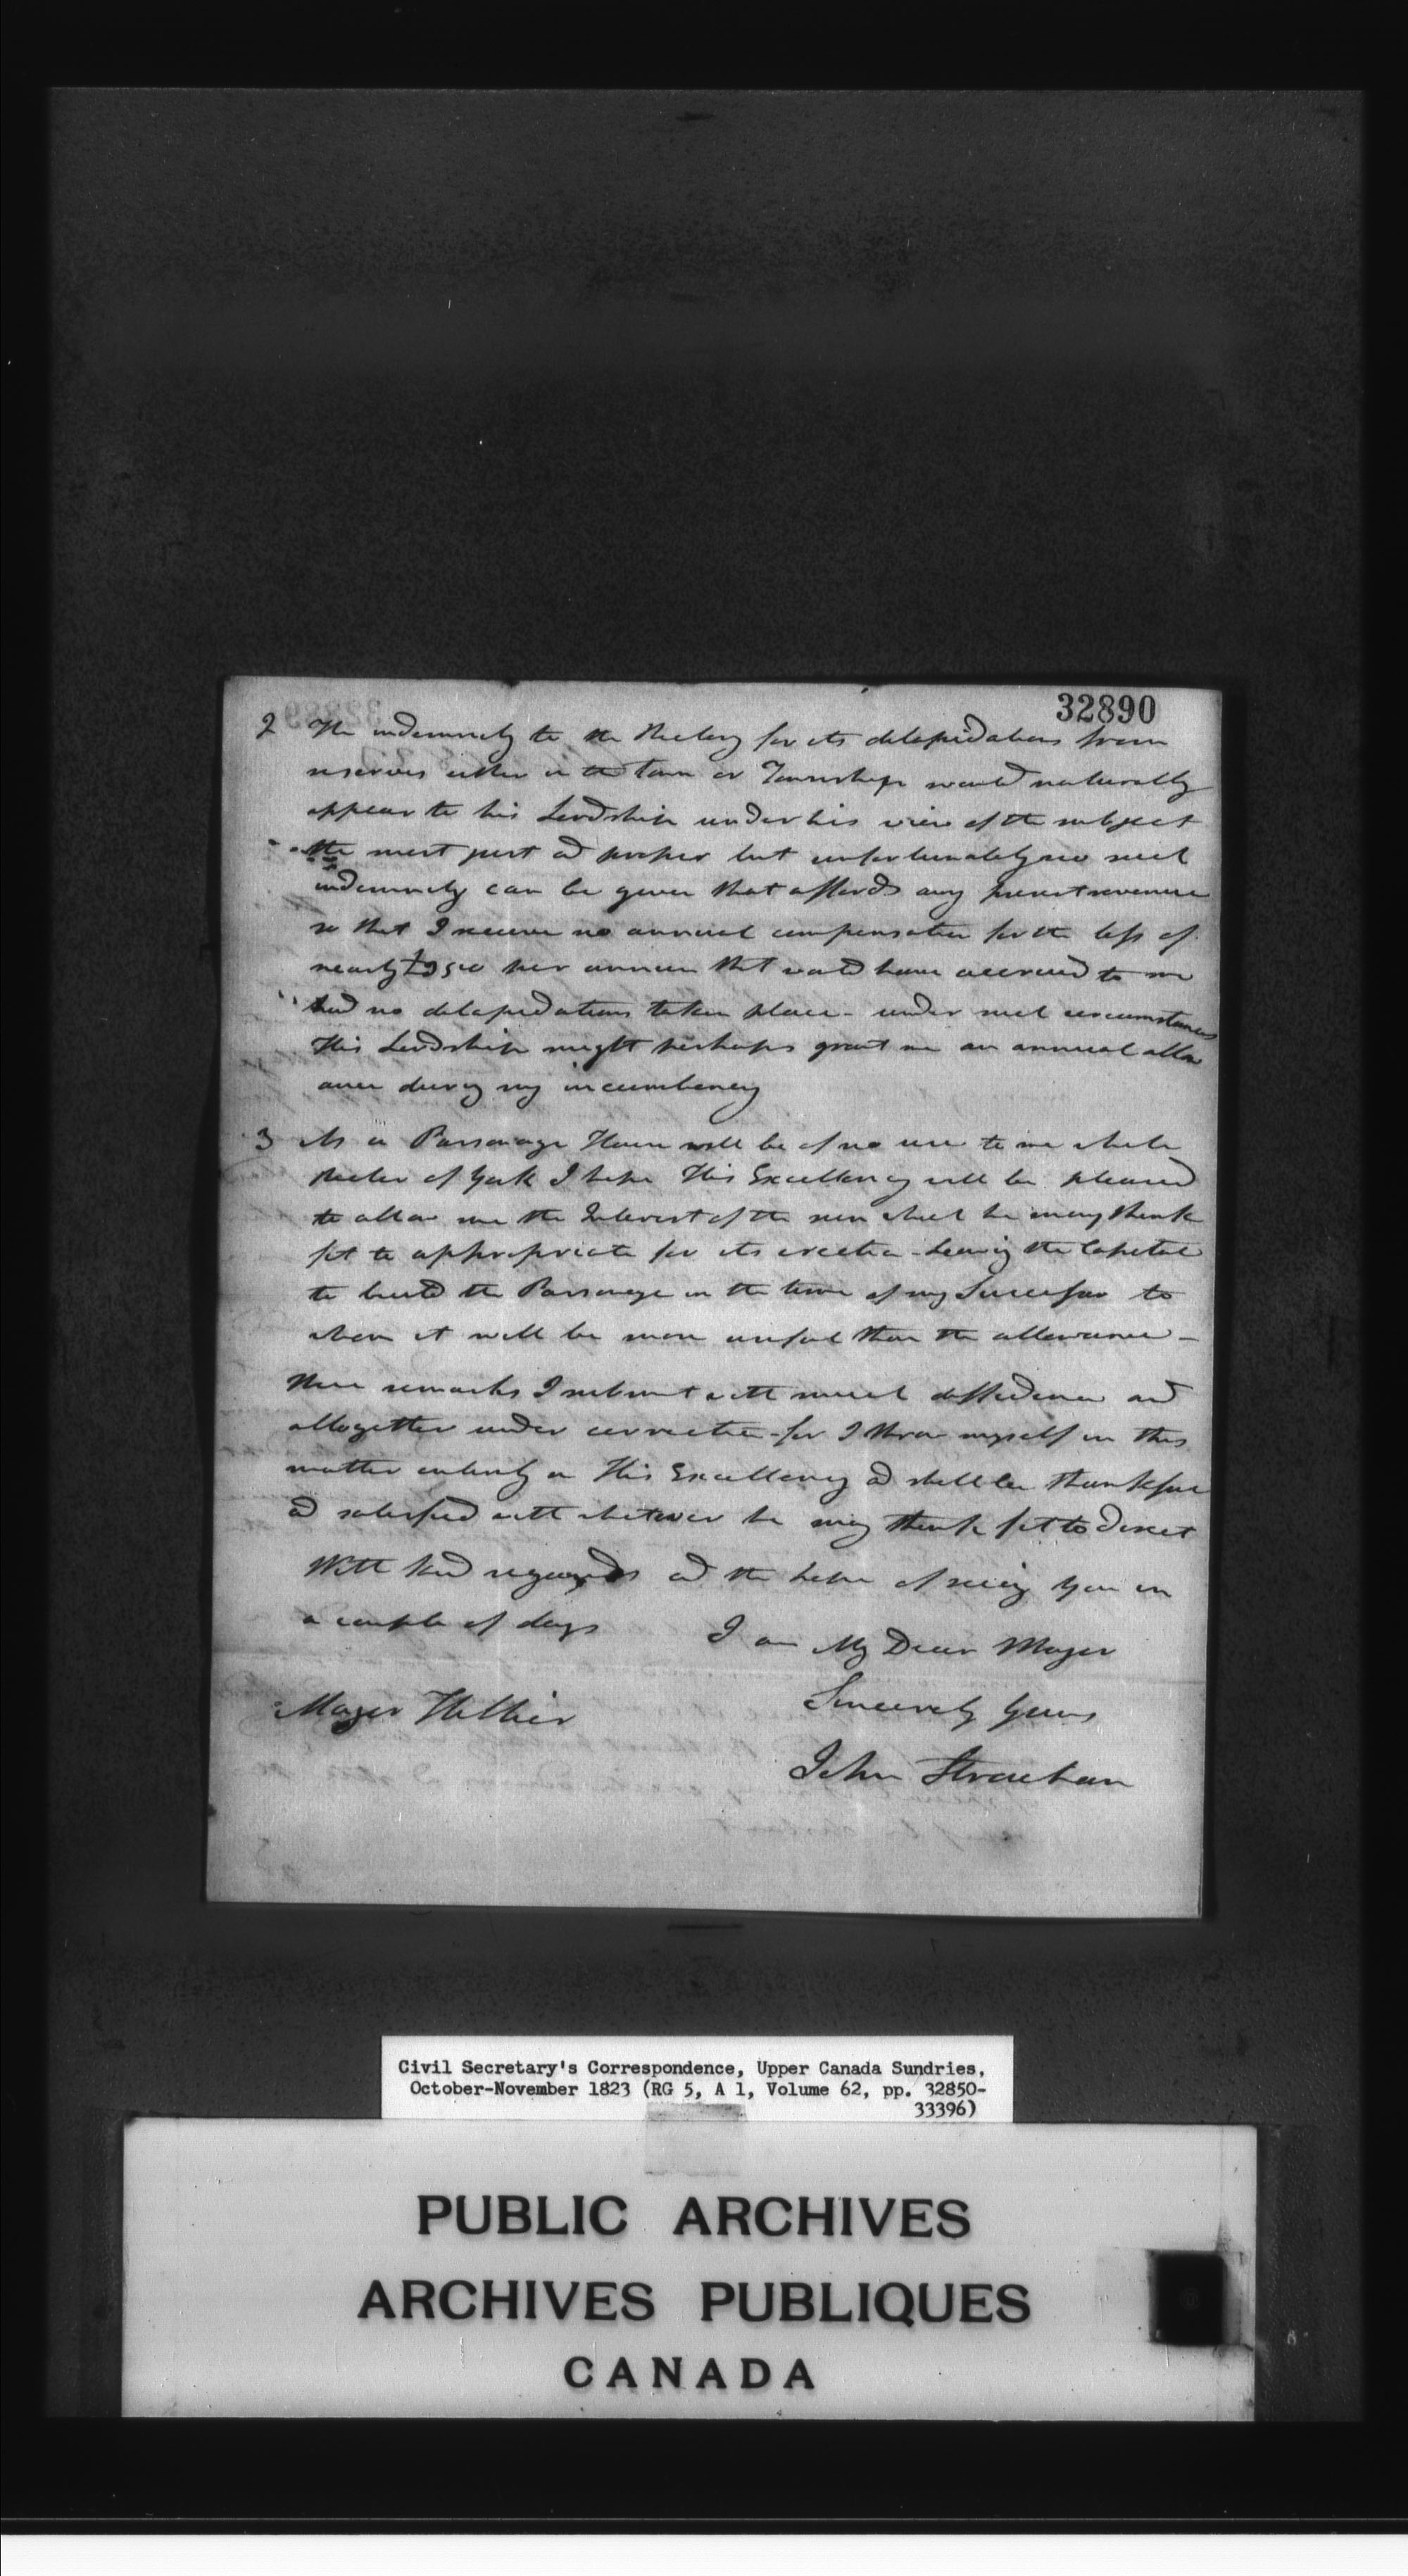 32890
2 The indemnity to the Rectory for its delapidations from
reserves either in the Town or Township would naturally
appear to his Lordship under his view of the subject
the most just & proper but unfortunately no such
indemnity can be given that affords any present revenue
so that I receive no annual compensation for the loss of
nearly per annum that would have accrued to me
had no delapidations taken place - under such circumstances
His Lordship might perhaps grant me an annual allow
ance during my incumbency
3 As a Parsonage House will be of no use to me while
Rector of York I hope His Excellency will be pleased
to allow me the Interest of the sum which he may think
fit to appropriate for its erection - leaving the Capital
to build the Parsonage in the time of my Successor to
whom it will be more useful than the allowance -
These remarks I submit with much diffidence and
altogether under correction - for I throw myself in this
matter entirely on His Excellency & shall be thankful
& satisfied with whatever he may think fit to direct
With kind regards & the hope of seeing you in
a couple of days
I am My Dear Major
Sincerely yours
Major Hillier
John Strachan
Civil Secretary's Correspondence, Upper Canada Sundries,
October-November 1823 (RG 5, A 1, Volume 62, pp. 32850-
33396)
PUBLIC ARCHIVES
ARCHIVES PUBLIQUES
CANADA